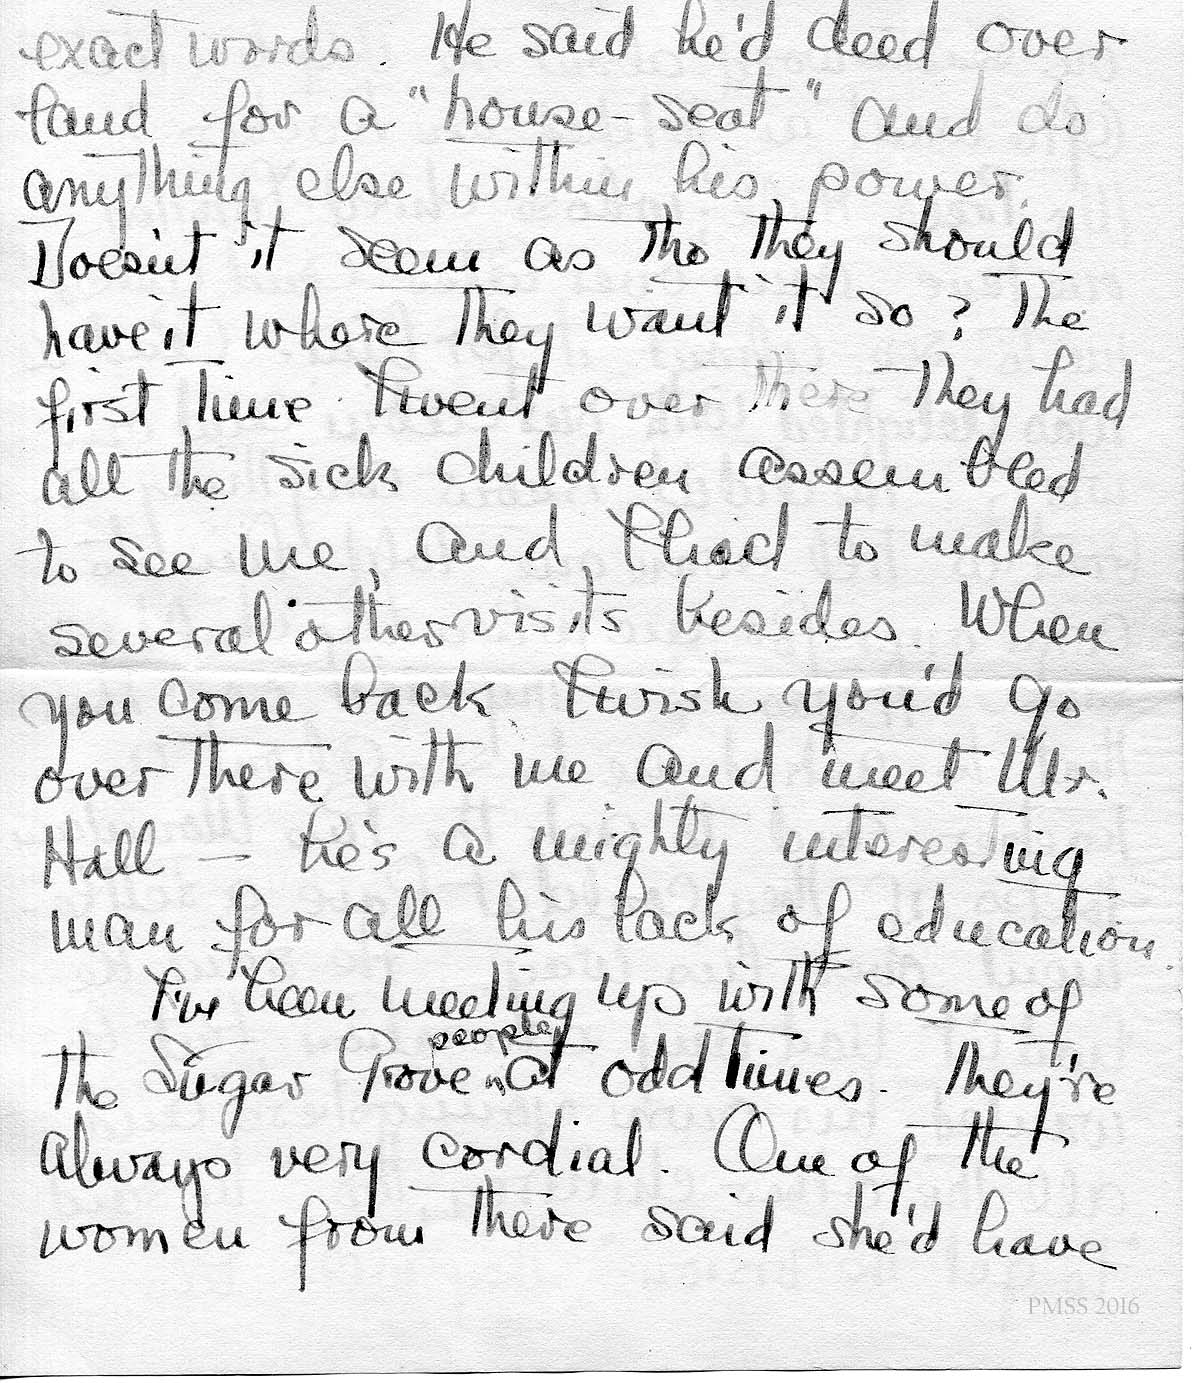 exact words. He said he'd deed over
land for a "house-seat" and do
anything else within his power.
Doesn't it seem as tho they should
have it where they want it so? The
first time I went over there they had
all the sick children assembled
to see me, and I had to make
several other visits besides. When
you come back I wish you'd go
over there with me and meet Mr.
Hall — he's a mighty interesting
man for all his lack of education.
I've been meeting up with some of
people
the Sugar Grove ^ at odd times. They're
always very cordial. One of the
women from there said she'd have
PMSS 2016